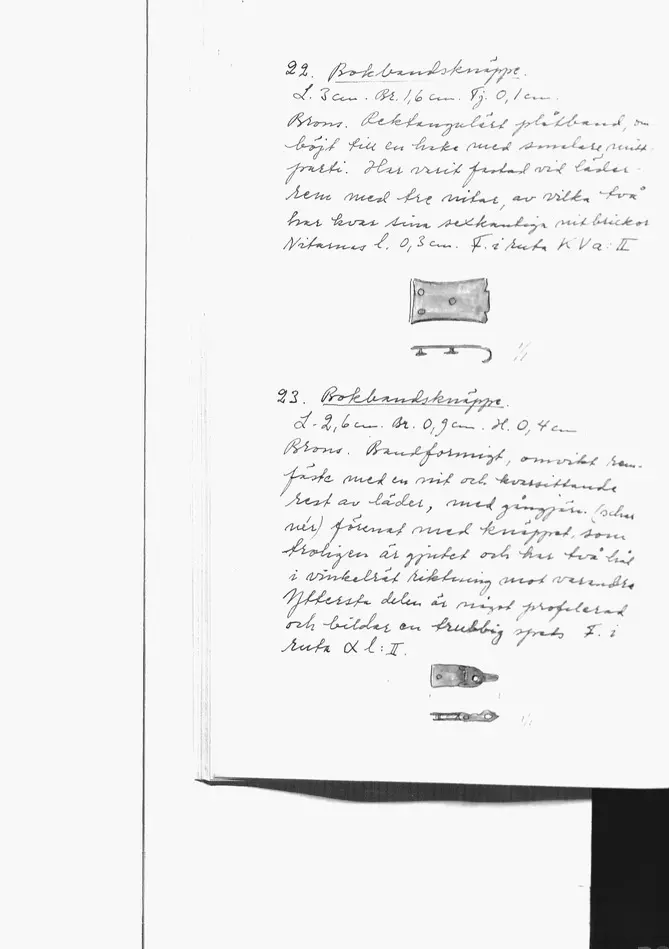 22. Bokbandsknäppe.
L. 3 cm. Br. 1,6 cm. Tj. 0,1 cm.
Brons. Rektangulärt plåtband, om
böjt till en hake med smalare mitt-
parti. Har varit fästad vid läder-
rem med tre nitar, av vilka två
har kvar sina sexkantiga nitbrickor
Nitarnas l. 0,3 cm. F. i ruta K V a: II
1/1
23. Bokbandsknäppe.
L. 2,6 cm. Br. 0,9 cm. H. 0,4 cm
Brons. Bandformigt, omvikt rem-
fäste med en nit och kvarsittande
rest av läder, med gångjärn (schar
nér) förenat med knäppet, som
troligen är gjutet och har två hål
i vinkelrät riktning mot varandra
Yttersta delen är något profilerad
och bildar en trubbig spets F. i
ruta α l: II.
1/1